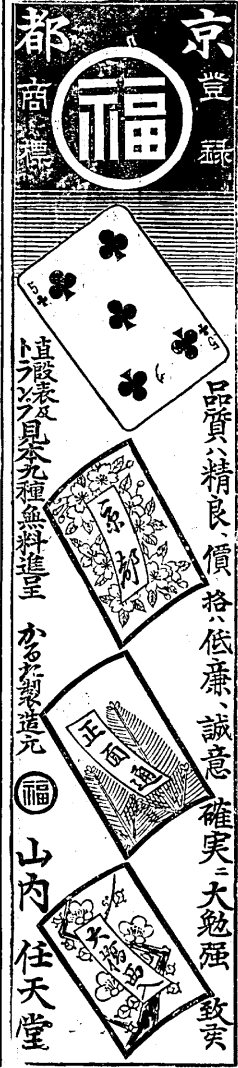 京都
登録
商標
福
5
5
品質ハ精良、價格ハ低廉、誠意確実ニ大勉强致実
京都
正面通
大橋西入
直段表及
トランプ見本九種無料進呈
かるた製造元
福
山内任天堂